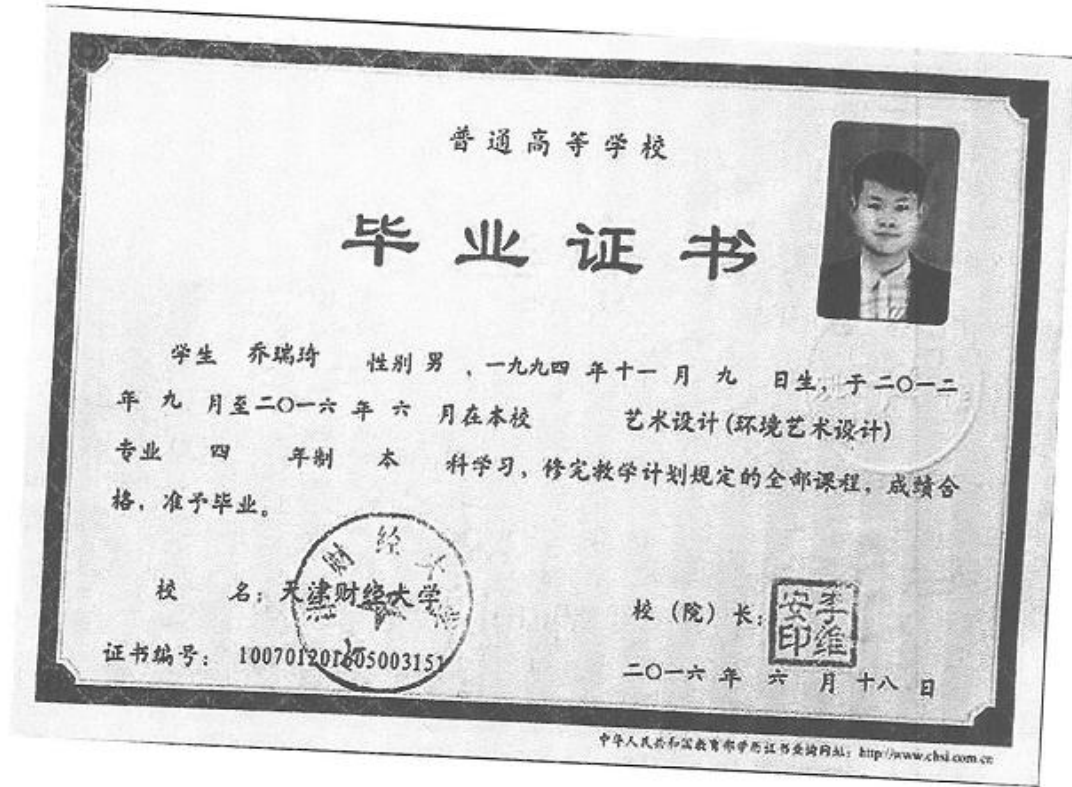 普通高等学校
毕业证书
学生 乔瑞琦 性别 男 ，一九九四 年 十一 月 九 日生，于 二〇一二
年 九 月至 二〇一六 年 六 月在本校 艺术设计(环境艺术设计)
专业 四 年制 本 科学习，修完教学计划规定的全部课程，成绩合
格，准予毕业。
财经大
校 名：天津财经大学
校（院）长：
李维安印
证书编号： 100701201605003151
二〇一六 年 六 月 十八 日
中华人民共和国教育部学历证书查询网址：http://www.chsi.com.cn